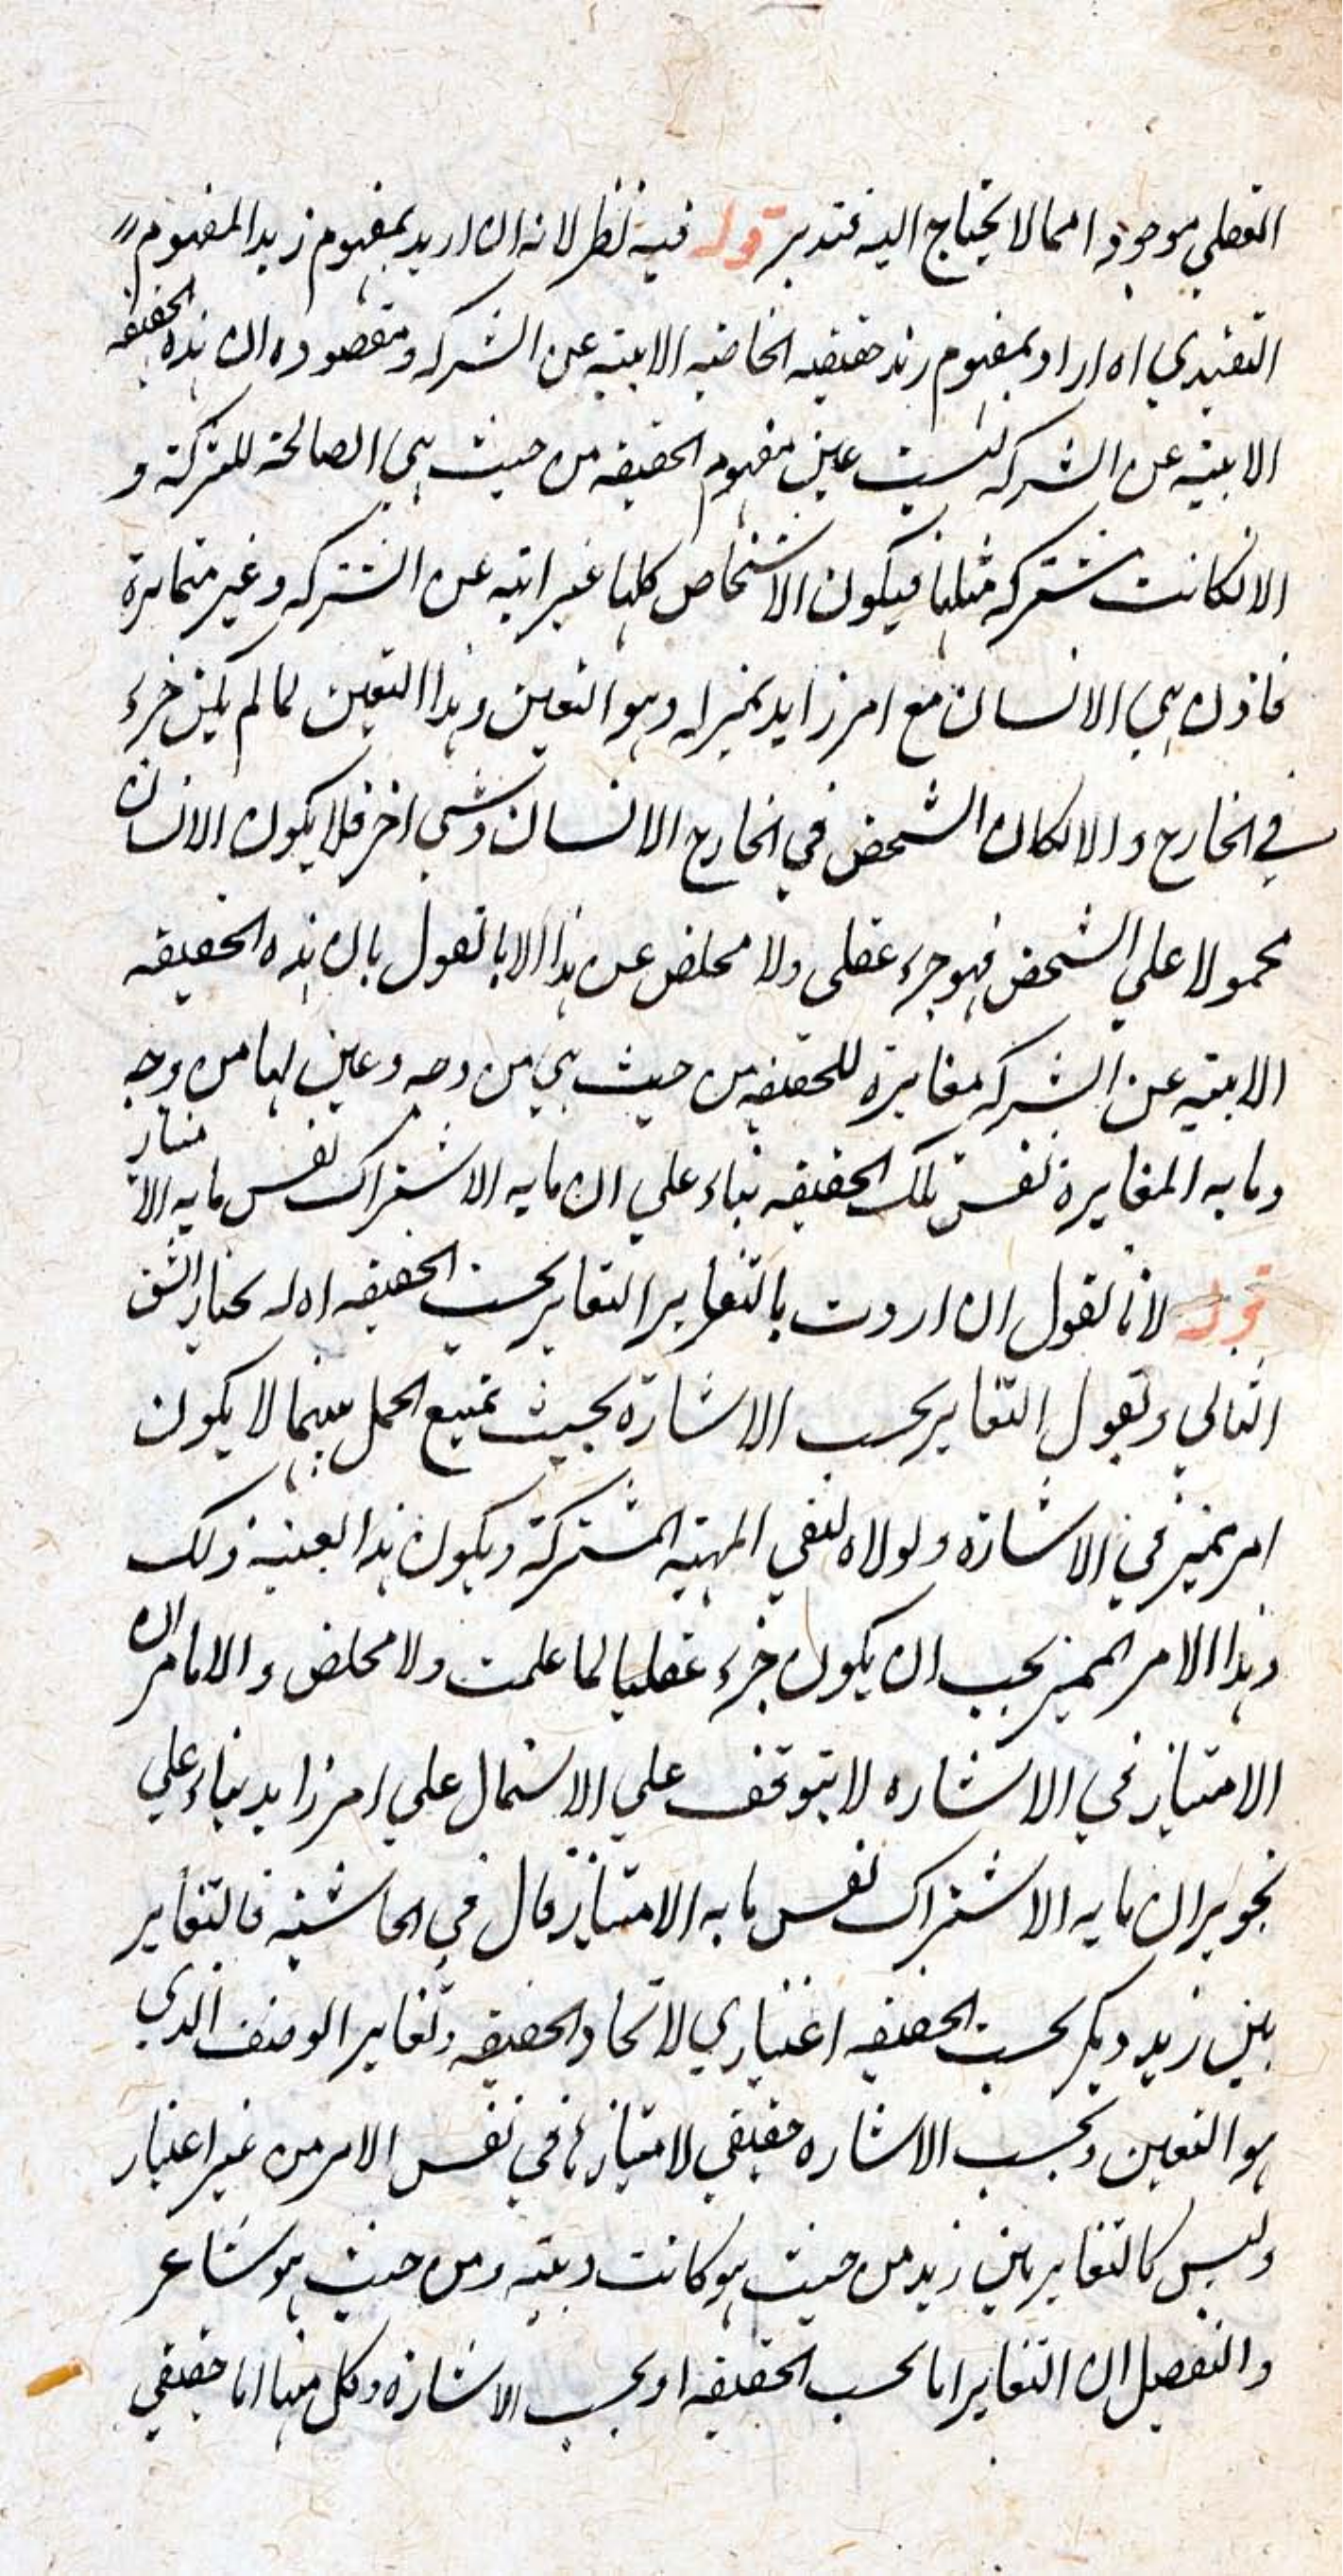 الفعلي موجود امما لا يحتاج اليه فتدبر قوله فيه نظر لانه ان اريد بمفهوم زيد المفهوم
التقييدي اه اراد بمفهوم زيد حقيقيه الخاصه الابيه عن الشركه ومقصوده ان هذه الحقيقه
الابيه عن الشركه ليست عين مفهوم الحقيقه من حيث هي الصالحة للشركة و
الا لكانت مشتركه مثلها فيكون الاشخاص كلها غير ابيه عن الشركه وغير متمايزة
فاذن هي الانسان مع امر زايد يميز له وهو التعين وهذا التعين لما لم يكن جزء
في الخارج والا لكان الشخص في الخارج الانسان وشي اخر فلا يكون الانسان
محمولا علي الشخص فهو جزء عقلي ولا مخلص عن هذا الا بالقول بان هذه الحقيقه
الابيه عن الشركه مغايرة للحقيقه من حيث هي من وجه وعين لها من وجه
وما به المغايرة نفس تلك الحقيقه بناء علي ان ما به الاشتراك نفس ما به الامتياز
قوله لانا نقول ان اردت بالتغاير التغاير بحسب الحقيقه اه له يختار الشق
الثاني ويقول التغاير بحسب الاشارة بحيث يمتنع الحمل بينهما لا يكون
امر يميز في الاشارة ولولاه لنفي المهيه المشتركة ويكون هذا بعينه ذلك
وهذا الامر المميز يجب ان يكون جزء عقليا لما علمت ولا مخلص والا ما مر ان
الامتياز في الاشاره لا يتوقف علي الاشتمال علي امر زايد بناء علي
تجويز ان ما به الاشتراك نفس ما به الامتياز قال في الحاشيه فالتغاير
بين زيد وبكر بحسب الحقيقه اعتباري لاتحاد الحقيقه وتغاير الوصف الذي
هو التعين وبحسب الاشاره حقيقي لامتيازها في نفس الامر من غير اعتبار
وليس كالتغاير بين زيد من حيث هو كانت وبينه ومن حيث هو شاعر
والتفصيل ان التغاير اما بحسب الحقيقه او بحسب الاشارة وكل منها اما حقيقي